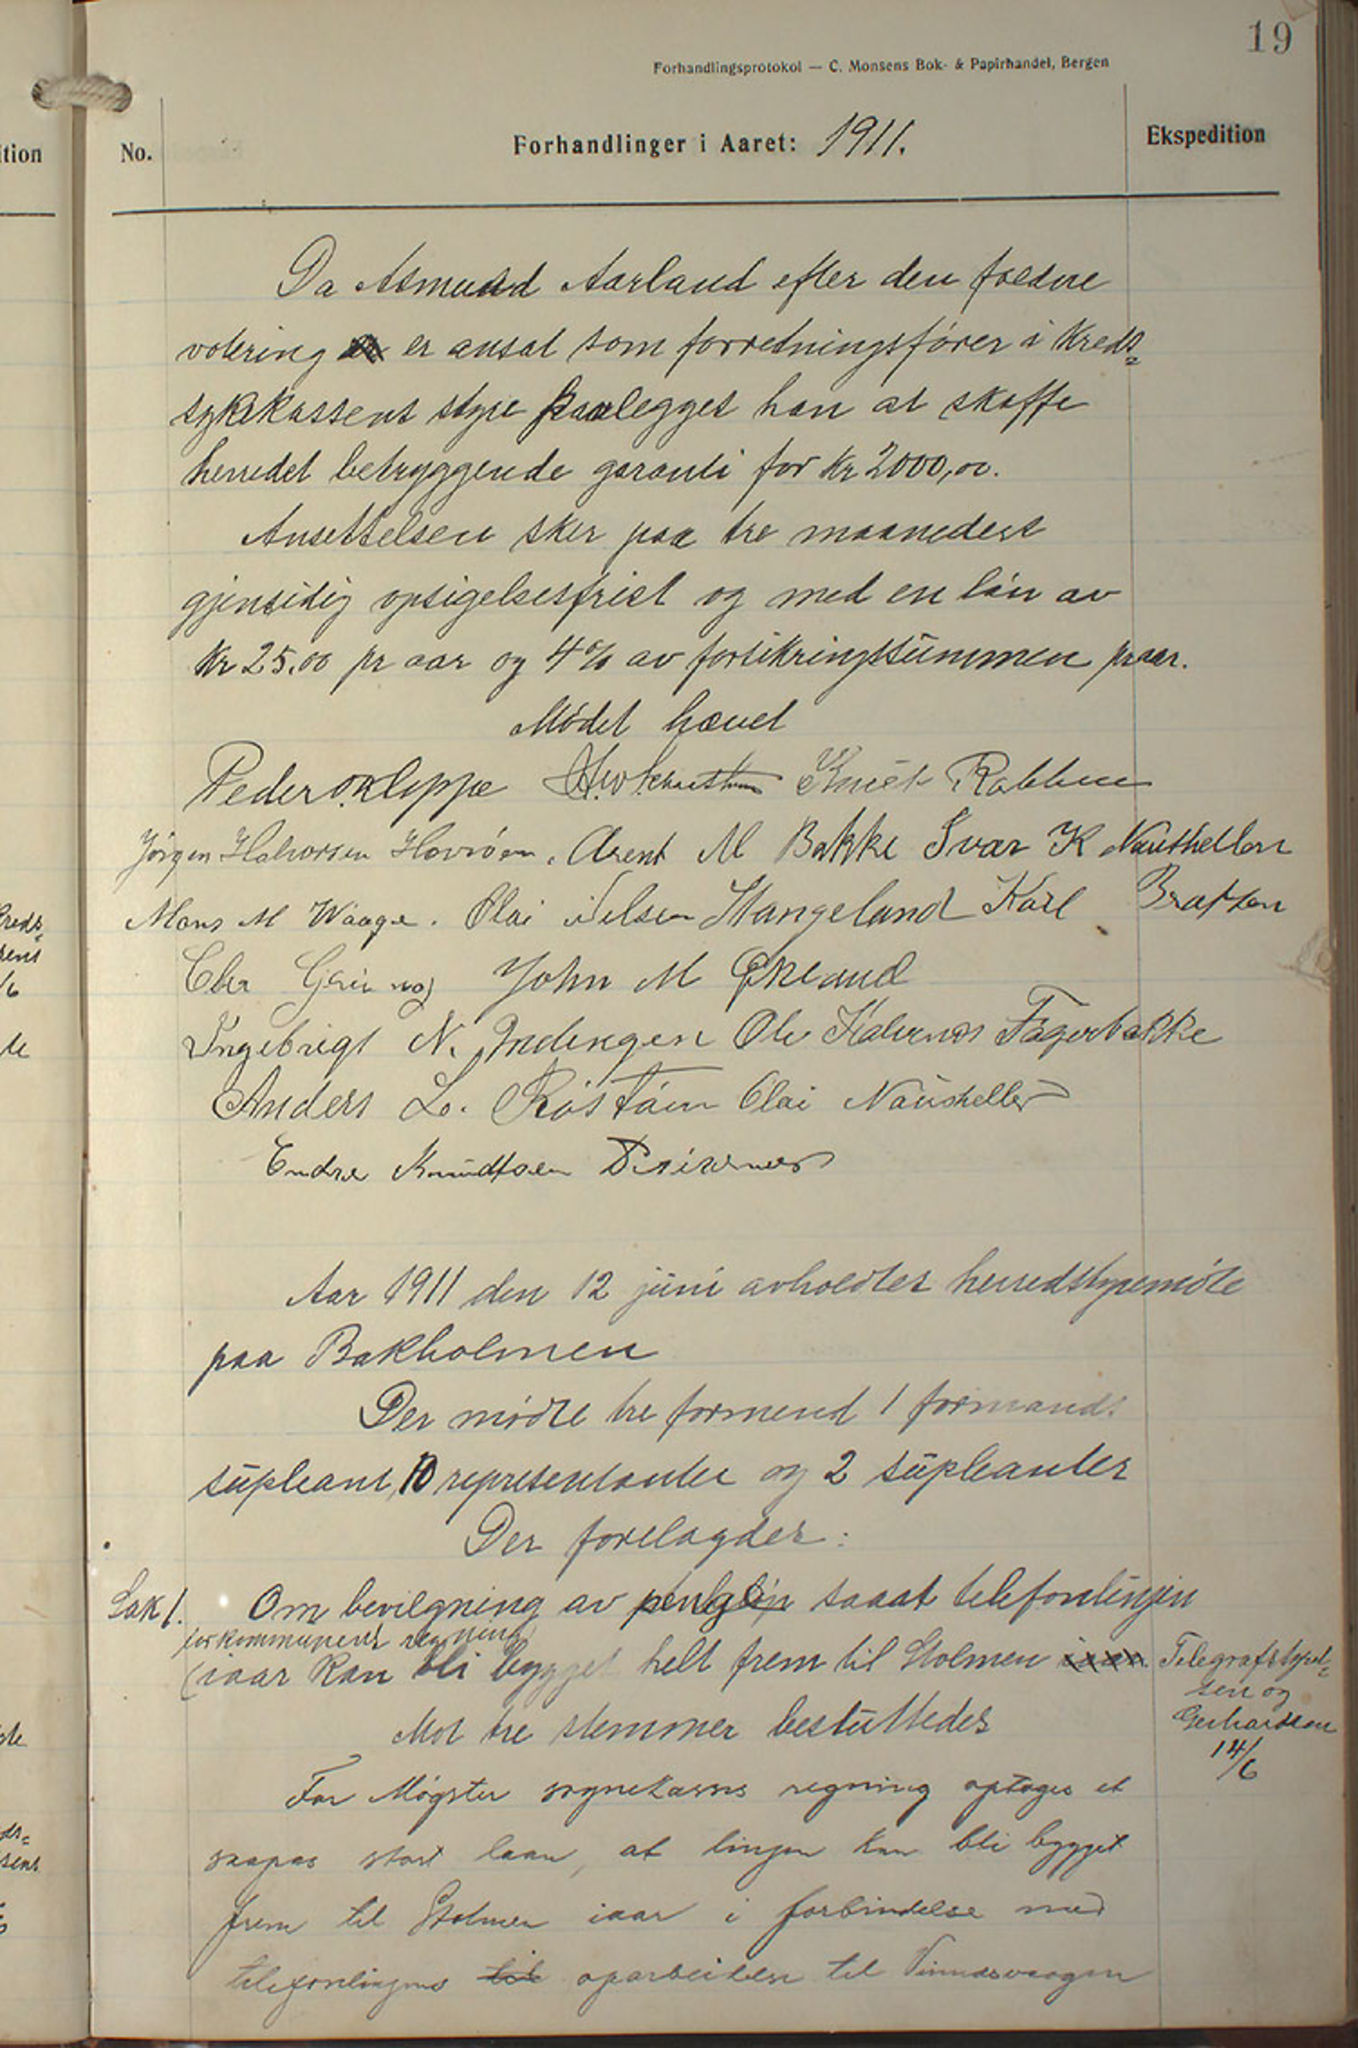 19
Forhandlingsprotokol — C. Monsens Bok- & Papirhandel, Bergen
No.
Forhandlinger i Aaret: 1911.
Ekspedition
Da Asmund Aarland efter den foldne
votering er ansat som forretningsfører i Kreds=
sykekassens styre paalegges han at skaffe
herredet betryggende garanti for Kr 2000,00.
Ansettelsen sker paa tre maaneders
gjensidig opsigelsesfrist og med en løn av
Kr 25.00 pr aar og 4% av forsikringssummen pr aar.
Mødet hævet
Peder O. Kleppe Knut Rabben
Jørgen Halvorsen Hovrøen. Arent M Bakke Ivar K Nausthellen
Mons M Waage. Olai Nelsen Stangeland Karl Bratten
John M Økland
Ingebrigt N. Indengen Ole Halvernes Fagerbakke
Anders L. Røstøen Olai Naustheller
Endre Knudtsen
Aar 1911 den 12 juni avholdtes herredstyremøte
paa Bakholmen
Der mødte tre formend 1 formands
supleant, 10 representanter og 2 supleanter
Der forelagdes:
Sak 1. Om bevilgning av pengløn saaat telefonlinjen
for kommunens regning
(iaar kan bli bygget helt frem til Stolmen iaar
Telegrafstyrel=
sen og
Gerhardsen
14/6
Mot tre stemmer besluttedes
For Møgster sognekasses regning optages et
saapas stort laan, at linjen kan bli bygget
frem til Stolmen iaar i forbindelse med
telefonlinjens til oparbeidelse til Vinnesvaagen